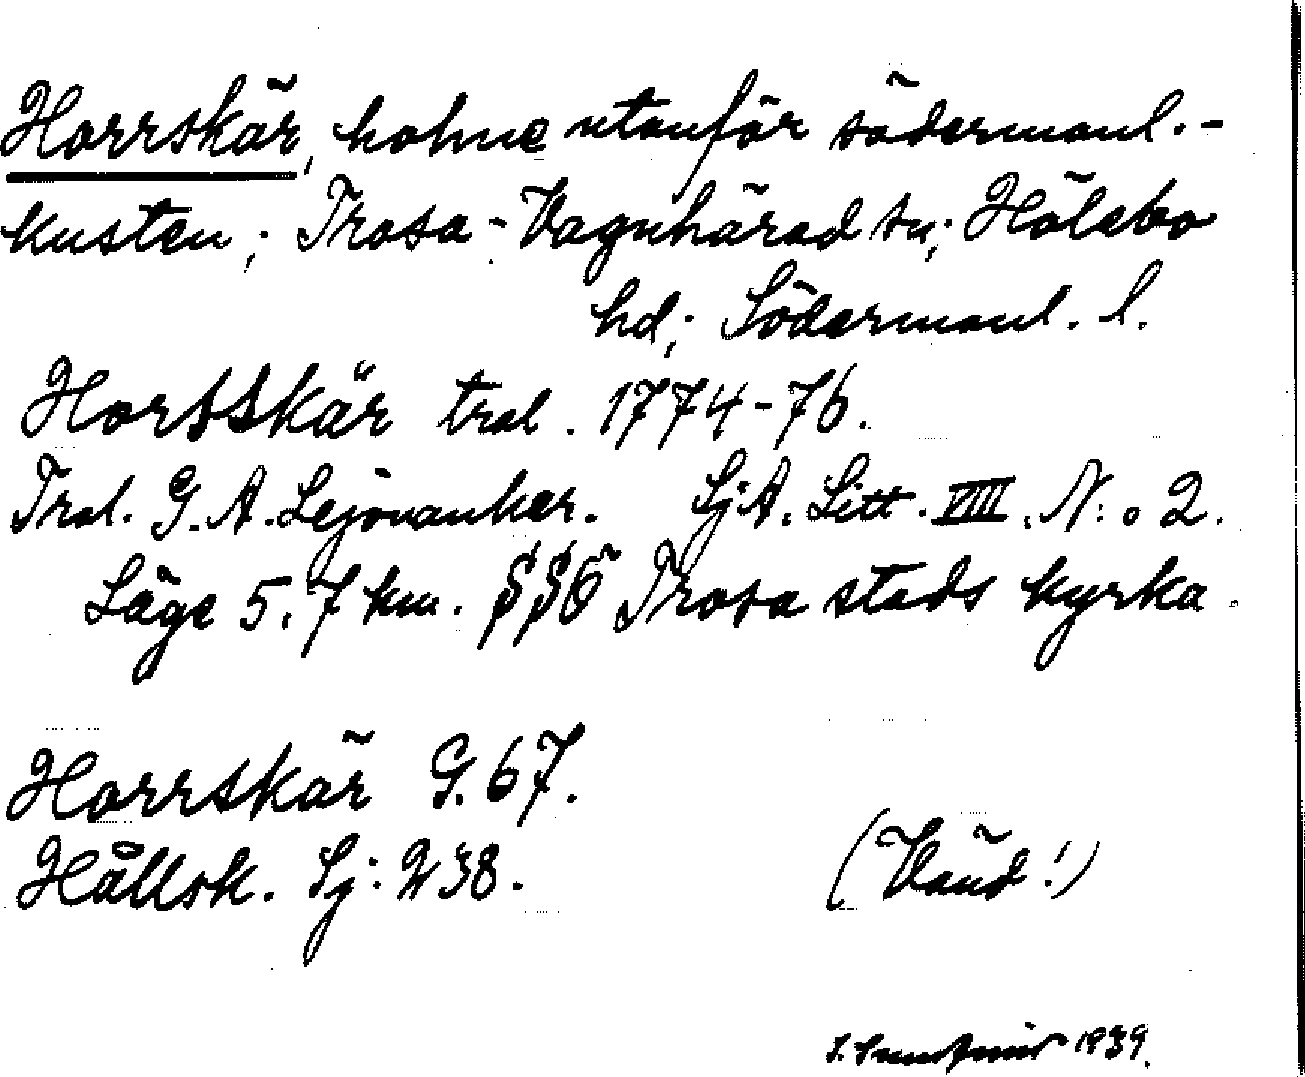 Horrskär, holme utanför södermanl.-
kusten; Trosa-Vagnhärad sn; Hölebo
hd; Södermanl. l.
Horsskär trol. 1774-76.
Trol. G. A. Lejonanker. Sj.A. Litt. VIII. N:o 2.
Läge 5.7 km. SSÖ Trosa stads kyrka.
Horrskär G. 67.
Hållsk. Sj: 238.
(Vänd!)
1939.